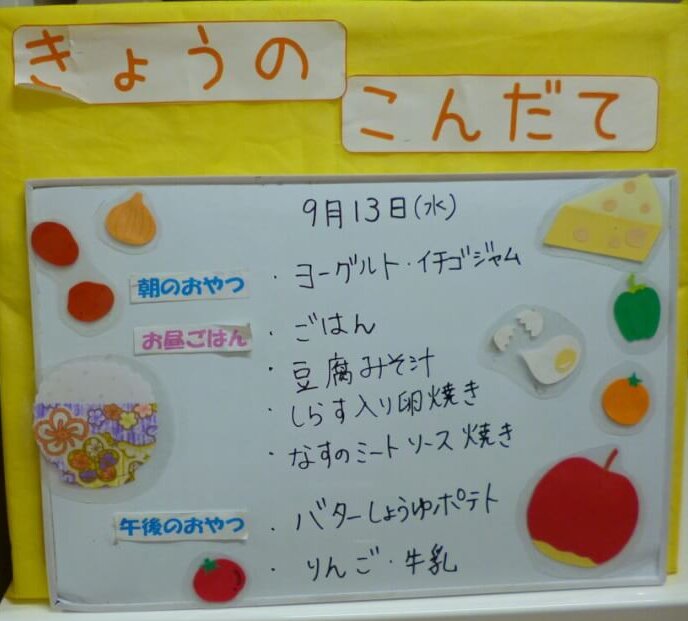 きょうの
こんだて
9月13日(水)
朝のおやつ ・ヨーグルト・イチゴジャム
お昼ごはん ・ごはん
・豆腐みそ汁
・しらす入り卵焼き
・なすのミートソース焼き
午後のおやつ ・バターしょうゆポテト
・りんご・牛乳